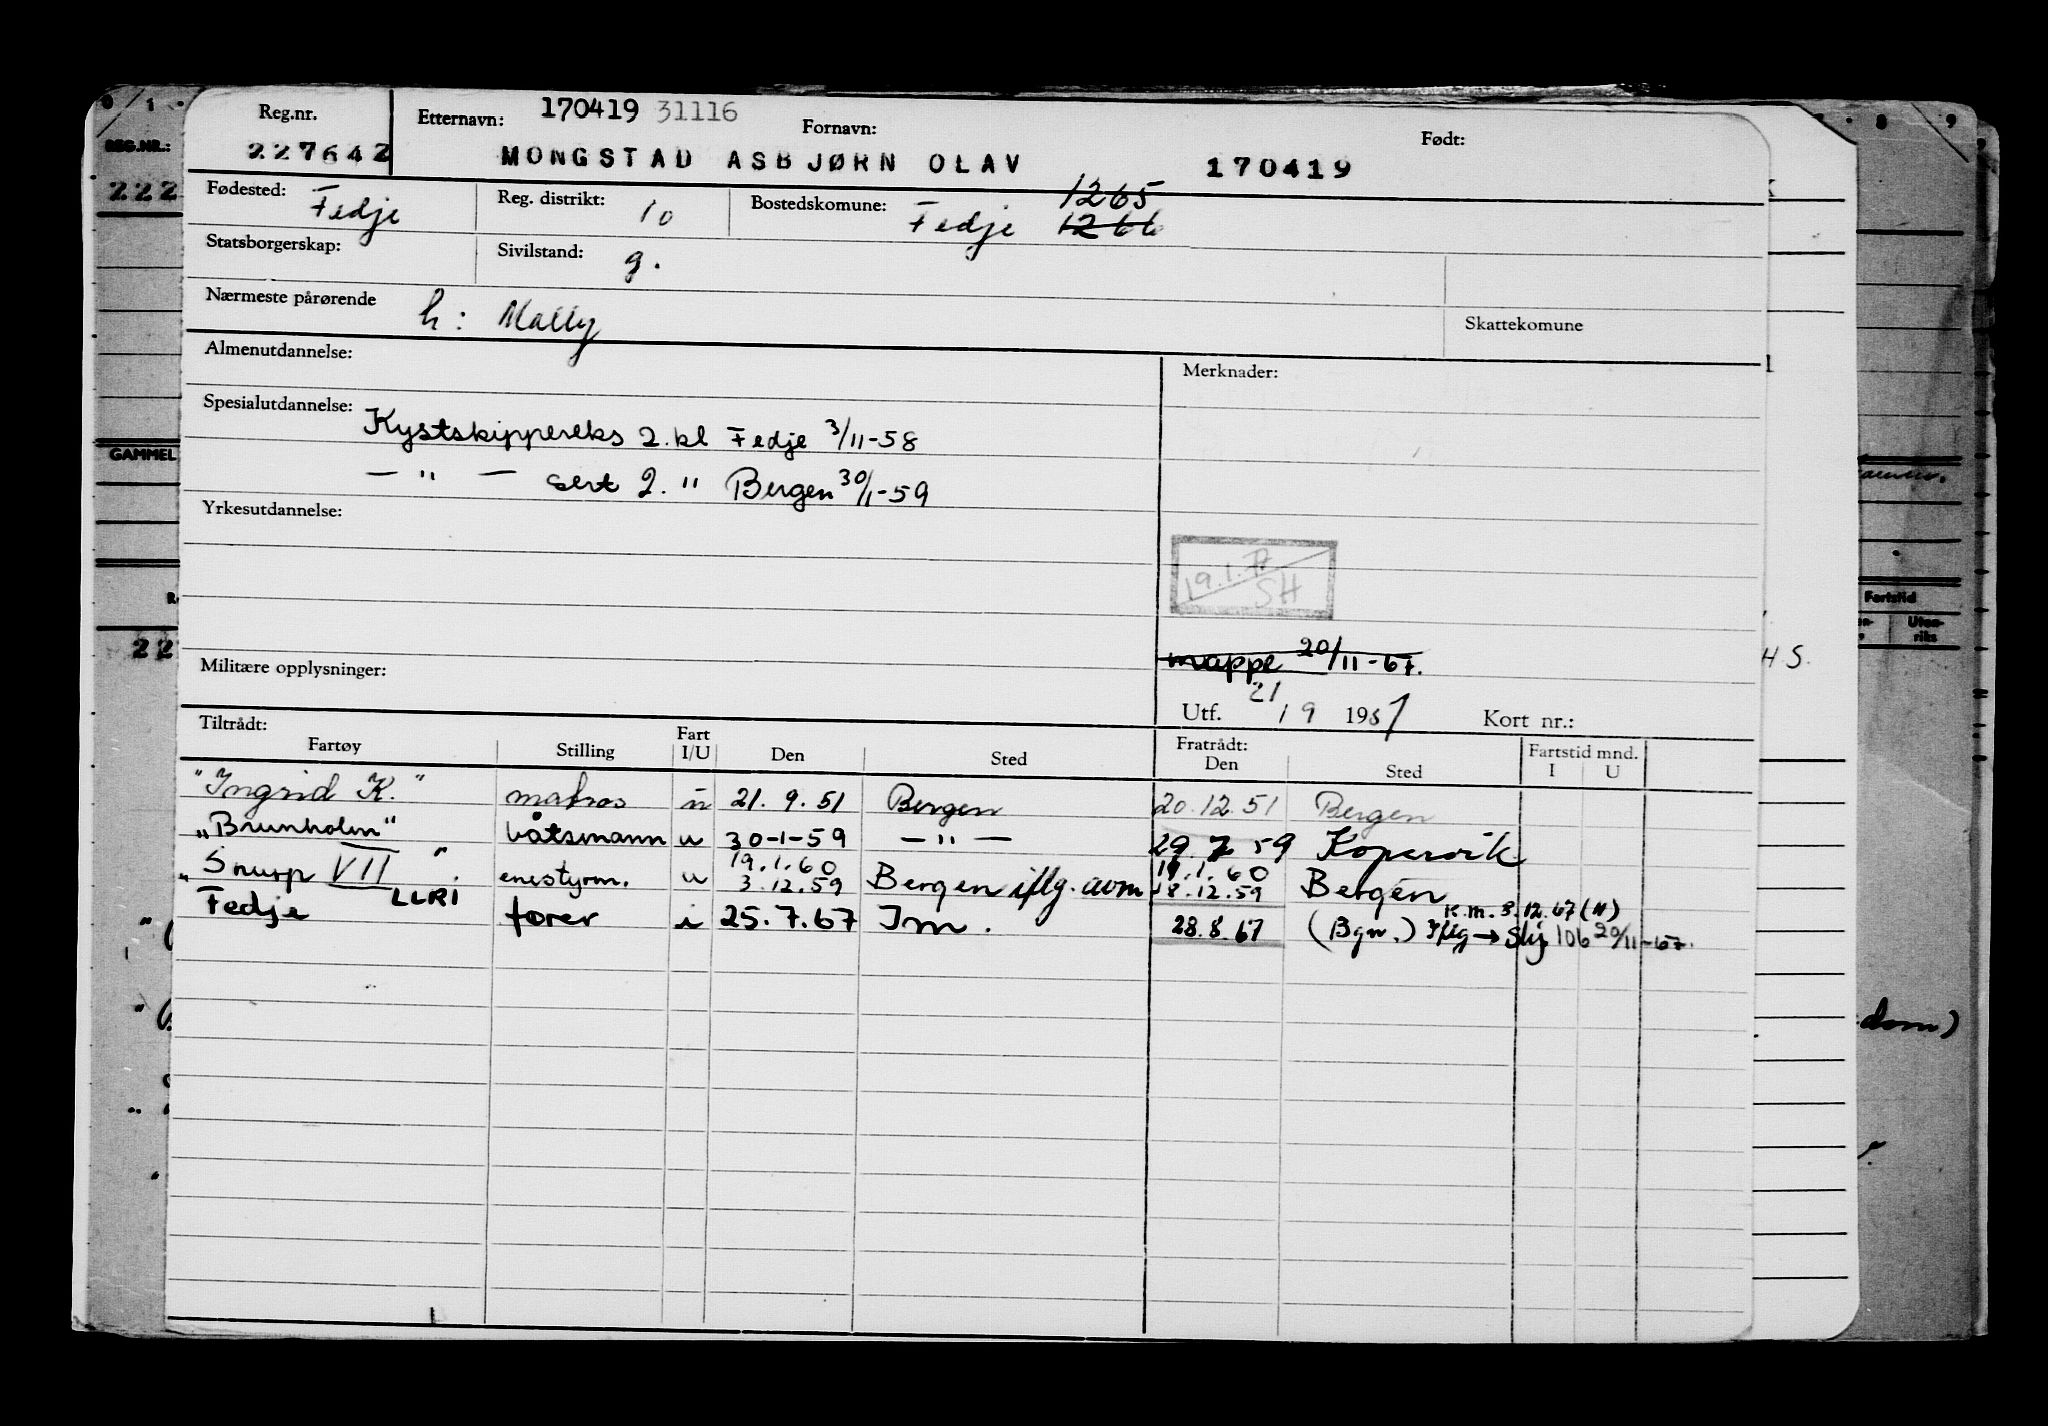 Reg.nr. Etternavn: 170419 31116 Fornavn: Født:
227642 MONGSTAD ASBJØRN OLAV 170419
Fødested: Fedje Reg. distrikt: 10 Bostedskomune: Fedje 1265 1266
Statsborgerskap: Sivilstand: g.
Nærmeste pårørende h: Mally Skattekomune
Almenutdannelse: Merknader:
Spesialutdannelse: Kystskippereks 2. kl Fedje 3/11-58
— " — sert 2. " Bergen 30/1-59
Yrkesutdannelse:
19.1.77
SH
mappe 20/11-67.
Militære opplysninger:
Utf. 21/9 1951 Kort nr.:
Tiltrådt: Fratrådt: Fartstid mnd.
Fartøy Stilling Fart I/U Den Sted Den Sted I U
"Ingrid K." matros u 21. 9. 51 Bergen 20.12.51 Bergen
"Brunholm" båtsmann u 30-1-59 — " — 29. 7 59 Kopervik
19.1.60 19.1.60
"Snurp VII" enestyrm. u 3.12.59 Bergen iflg. avm 18.12.59 Bergen
K.m. 8.12.67 (H)
Fedje LLRI fører i 25.7.67 Im. 28.8.67 (Bgn.) Iflg → Skj 106 20/11-67.
REG.NR.:
222
GAMMEL
22
8 9
Fartstid
Uten-
riks
H S.
dom)